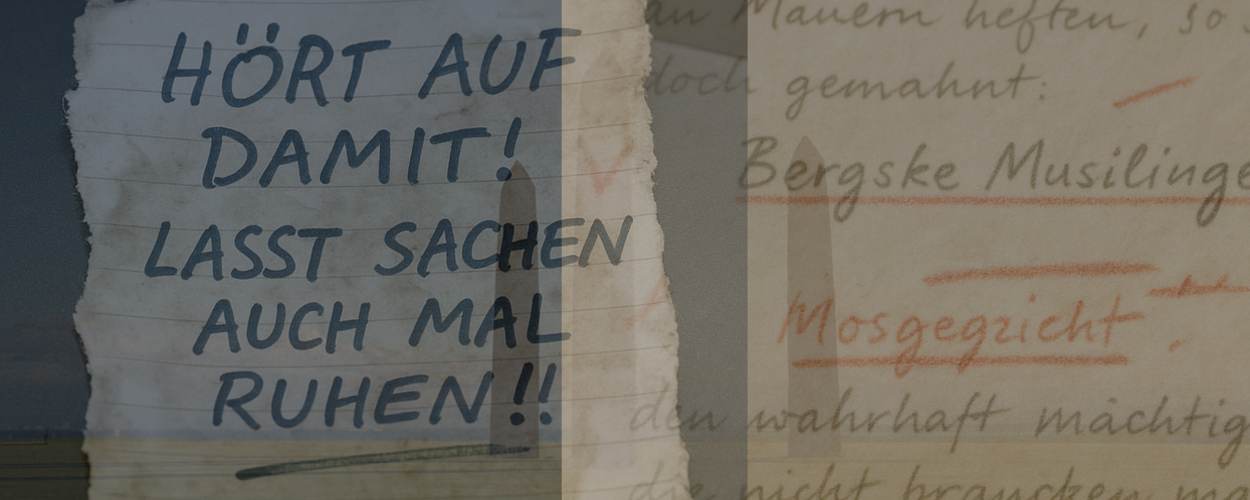 HÖRT AUF
DAMIT!
LASST SACHEN
AUCH MAL
RUHEN!!
an Mauern heften, so
doch gemahnt:
Bergske Musilinge
Mosgegzicht.
den wahrhaft mächtig
die nicht brauchen